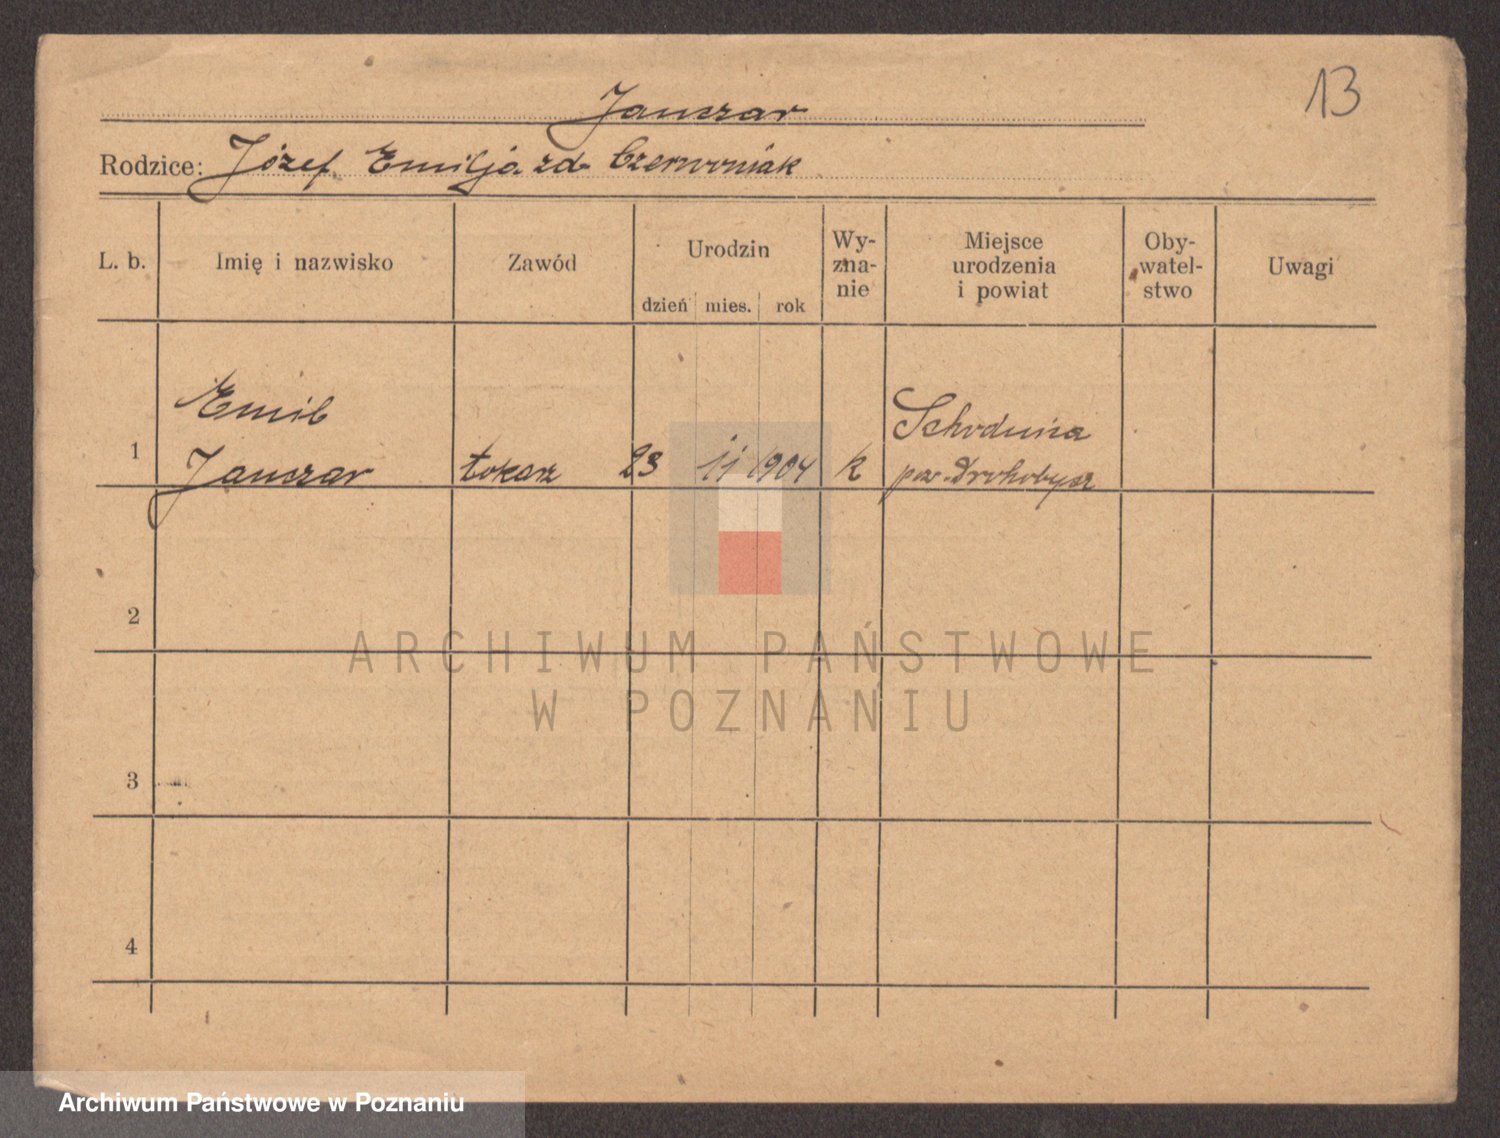 13
Janczar
Rodzice: Józef Emilja zd. Czerwoniak
L. b.
Imię i nazwisko
Zawód
Urodzin
dzień mies. rok
Wy-
zna-
nie
Miejsce
urodzenia
i powiat
Oby-
watel-
stwo
Uwagi
1
Emil
Janczar
tokarz
23
11
1904
k
Schodnica
pow. Drohobycz
2
3
4
ARCHIWUM PAŃSTWOWE
W POZNANIU
Archiwum Państwowe w Poznaniu